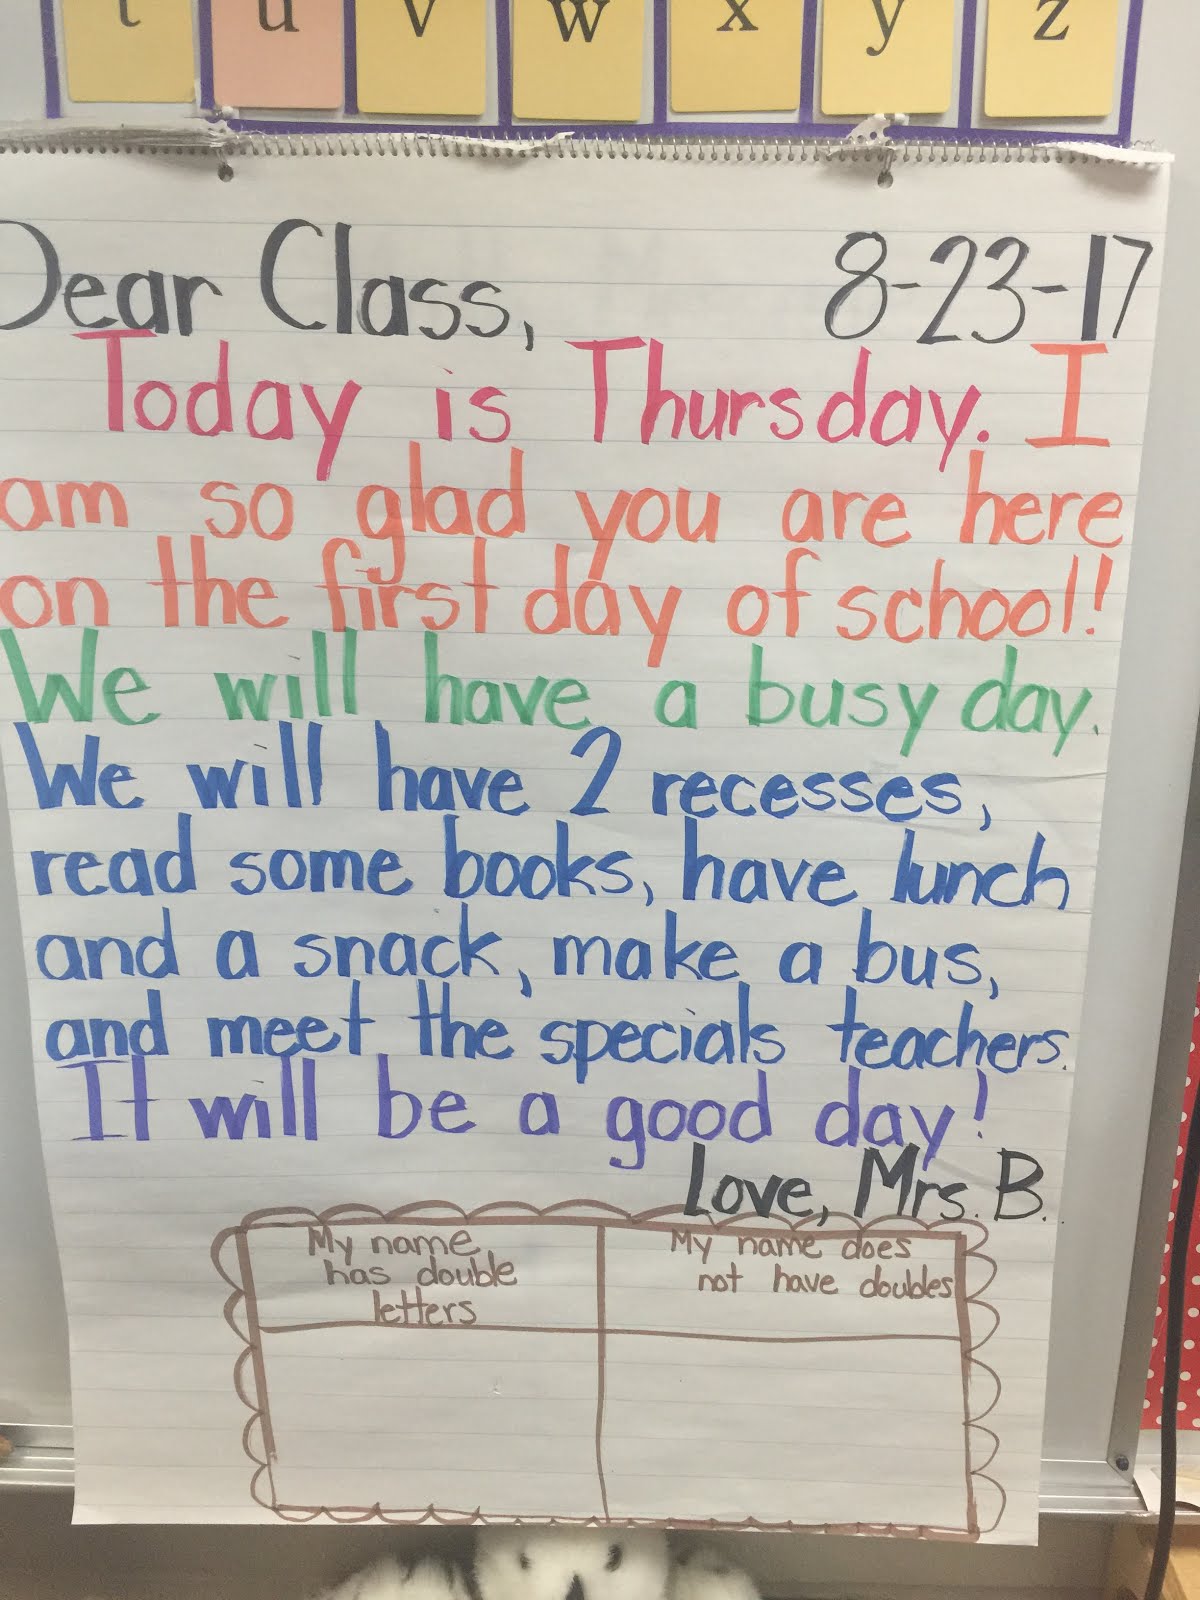 t u v w x y z
Dear Class, 8-23-17
Today is Thursday. I
am so glad you are here
on the first day of school!
We will have a busy day.
We will have 2 recesses,
read some books, have lunch
and a snack, make a bus,
and meet the specials teachers.
It will be a good day!
Love, Mrs. B.
My name
has double
letters
My name does
not have doubles